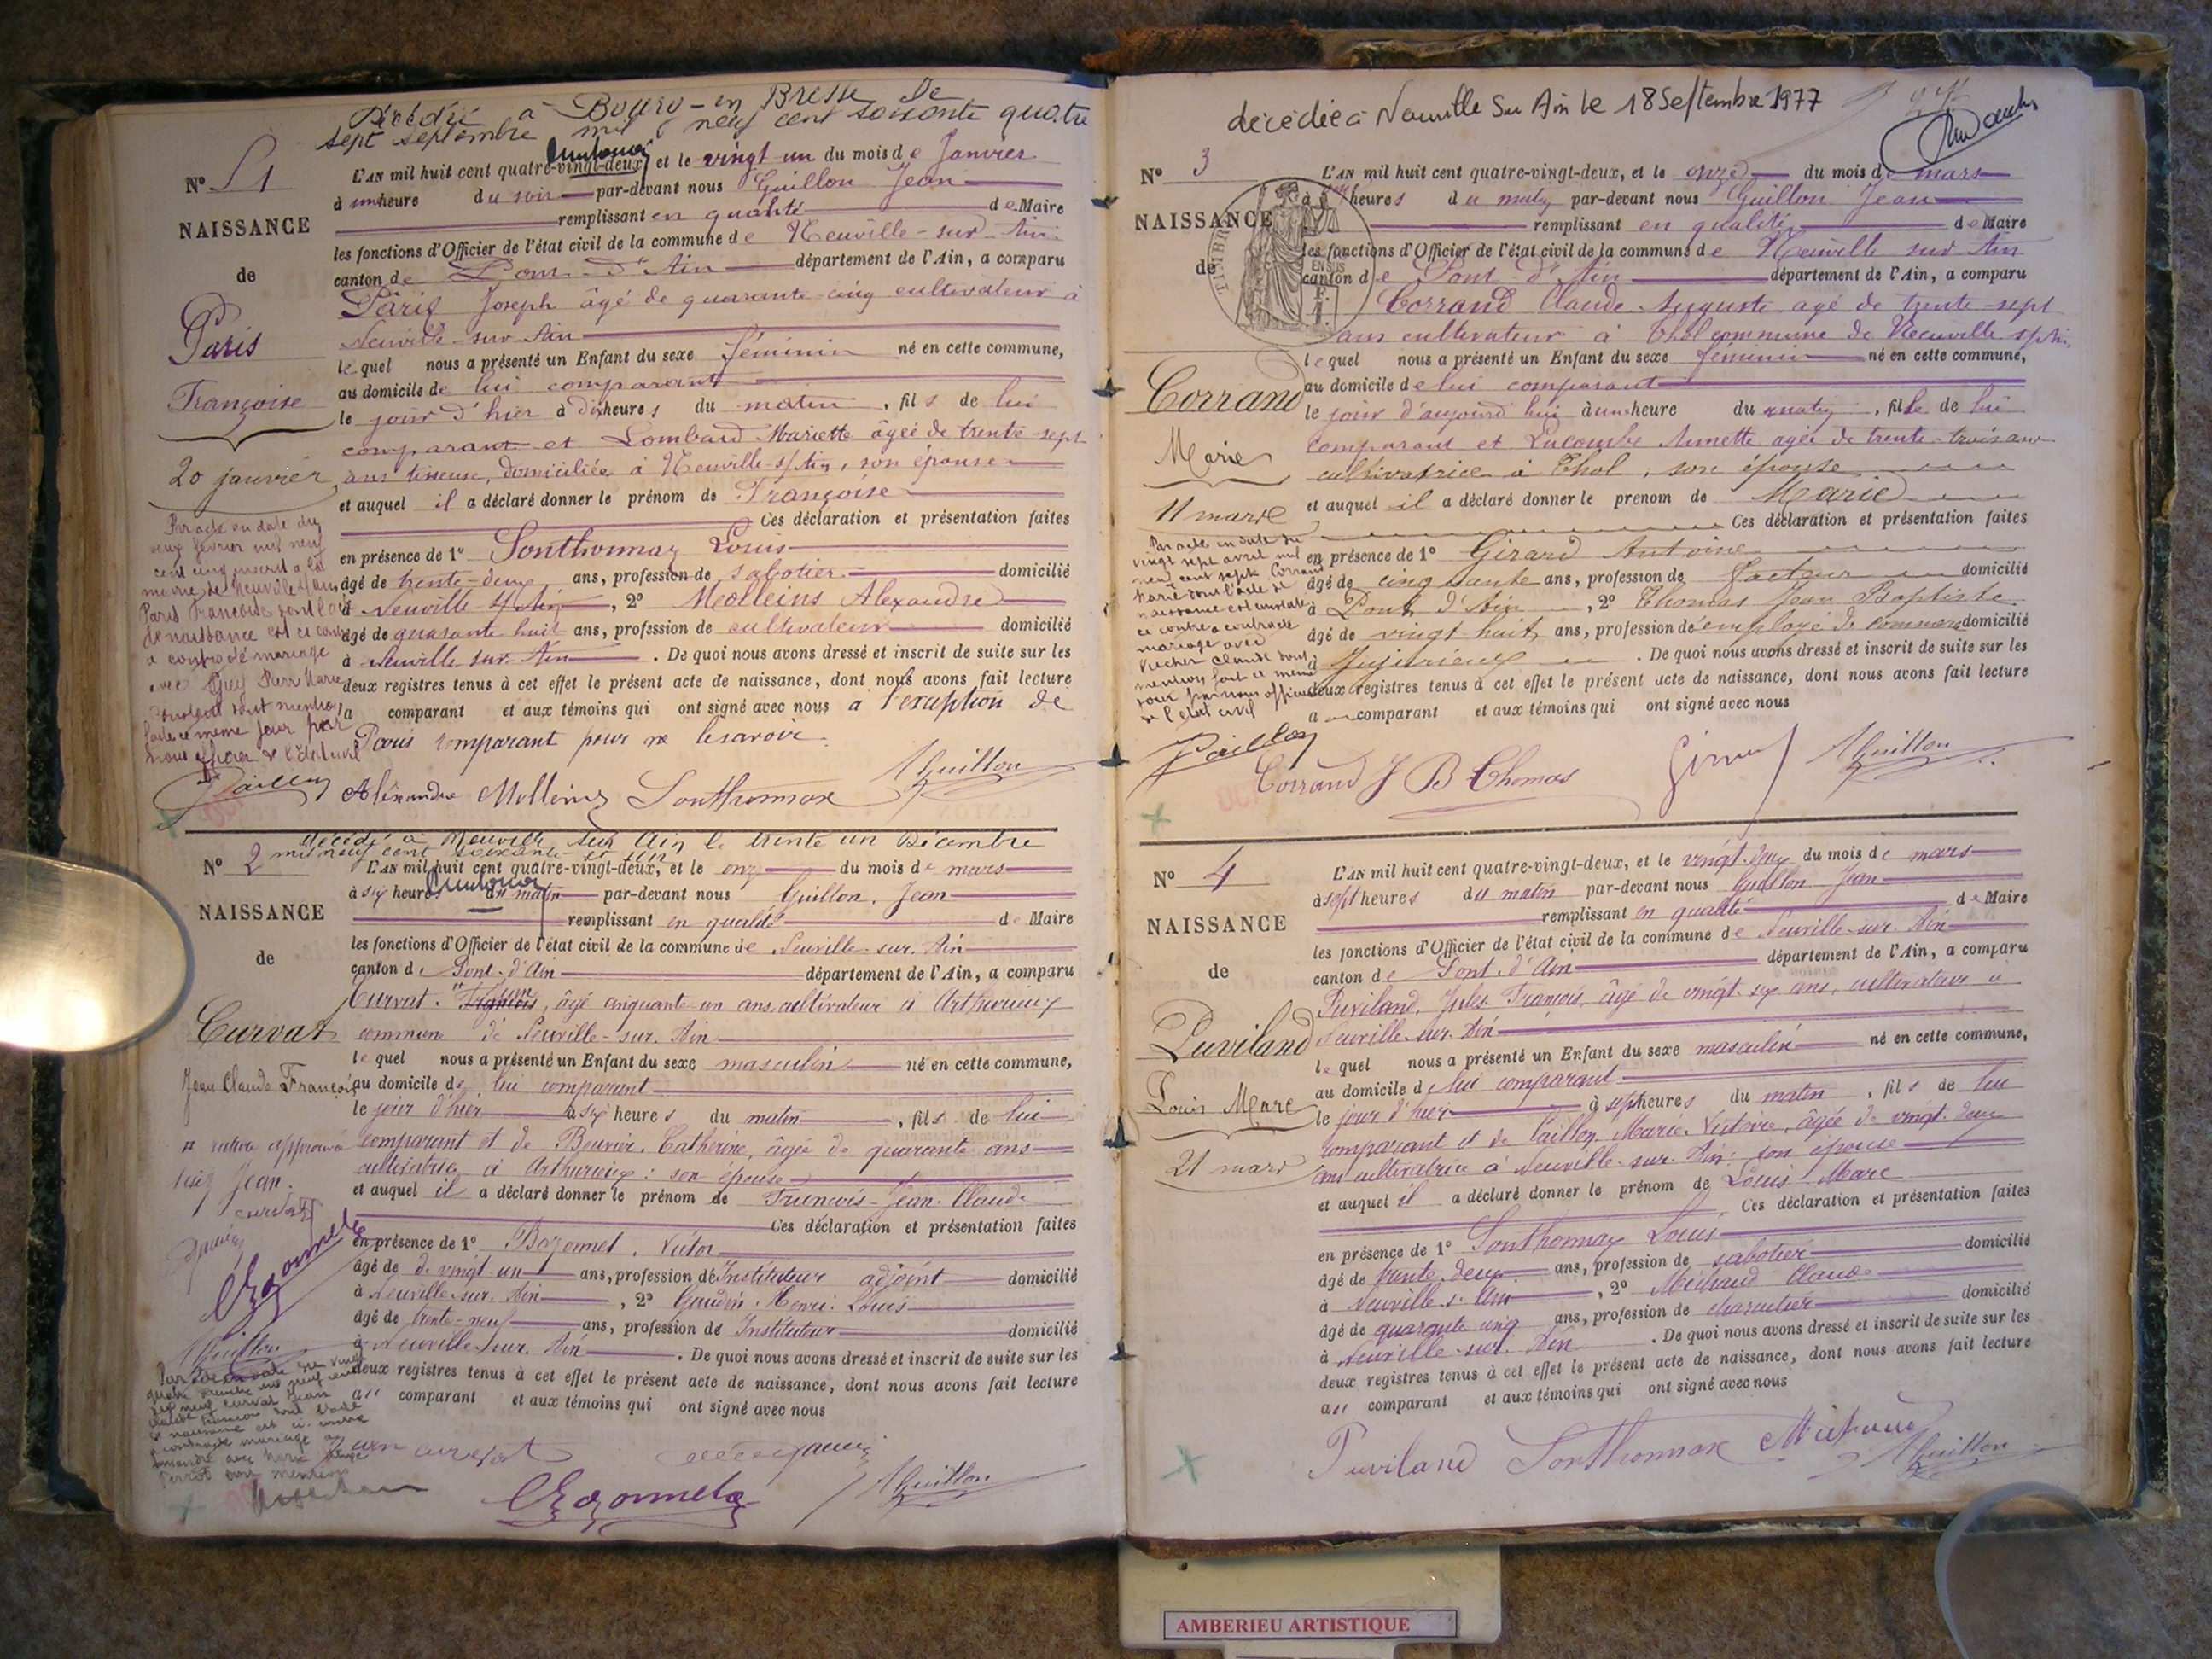 Décédée à Bourg-en Bresse le
sept septembre mil neuf cent soixante quatre
N° 1
L'AN mil huit cent quatre-vingt-deux, et le vingt un du mois de Janvier
à une heure du soir par-devant nous Guillon Jean
NAISSANCE
remplissant en qualité de Maire
les fonctions d'Officier de l'état civil de la commune de Neuville-sur-Ain
de
canton de Pont-d'Ain département de l'Ain, a comparu
Paris Joseph âgé de quarante cinq cultivateur à
Paris
Neuville-sur-Ain
le quel nous a présenté un Enfant du sexe féminin né en cette commune,
au domicile de lui comparant
Françoise
le jour d'hier à dix heures du matin, fils de lui
comparant et Lombard Mariette âgée de trente-sept
20 janvier
ans tisseuse, domiciliée à Neuville-s/Ain, son épouse
et auquel il a déclaré donner le prénom de Françoise
Ces déclaration et présentation faites
en présence de 1° Sonthonnax Louis
âgé de trente-deux ans, profession de sabotier domicilié
à Neuville s/Ain, 2° Molleins Alexandre
âgé de quarante huit ans, profession de cultivateur domicilié
à Neuville sur Ain. De quoi nous avons dressé et inscrit de suite sur les
deux registres tenus à cet effet le présent acte de naissance, dont nous avons fait lecture
a comparant et aux témoins qui ont signé avec nous à l'exception de
Paris comparant pour ne le savoir
Par acte en date du
deux février mil neuf
cent cinq inscrit à la
mairie de Neuville s/Ain
Paris Françoise dont l'acte
de naissance est ci contre
a contracté mariage
avec Pierre Marie
dont mention
faite ce même jour par
nous officier de l'état civil
Paillon Alexandre Molleins Sonthonnax JGuillon
décédé à Neuville sur Ain le trente un Décembre
mil neuf cent soixante et un
N° 2
L'AN mil huit cent quatre-vingt-deux, et le onze du mois de mars
à six heures du matin par-devant nous Guillon, Jean
NAISSANCE
remplissant en qualité de Maire
les fonctions d'Officier de l'état civil de la commune de Neuville-sur-Ain
de
canton de Pont-d'Ain département de l'Ain, a comparu
Curvat, Jean, âgé cinquante-un ans, cultivateur à Arthurieux
Curvat
commune de Neuville-sur-Ain
le quel nous a présenté un Enfant du sexe masculin né en cette commune,
Jean Claude François
au domicile de lui comparant
le jour d'hier à six heures du matin, fils de lui
rature approuvée
comparant et de Bouvier, Catherine, âgée de quarante ans
cultivatrice à Arthurieux: son épouse
lisez Jean.
et auquel il a déclaré donner le prénom de François-Jean-Claude
Ces déclaration et présentation faites
en présence de 1° Bozonnet, Victor
âgé de de vingt-un ans, profession de Instituteur adjoint domicilié
à Neuville-sur-Ain, 2° Gaudin, Henri Louis
âgé de trente-neuf ans, profession de Instituteur domicilié
à Neuville-sur-Ain. De quoi nous avons dressé et inscrit de suite sur les
deux registres tenus à cet effet le présent acte de naissance, dont nous avons fait lecture
au comparant et aux témoins qui ont signé avec nous
JGuillon
décédée à Neuville Sur Ain le 18 Septembre 1977
N° 3
L'AN mil huit cent quatre-vingt-deux, et le onze du mois de mars
heures du matin par-devant nous Guillon Jean
NAISSANCE
remplissant en qualité de Maire
les fonctions d'Officier de l'état civil de la commune de Neuville sur Ain
de
canton de Pont d'Ain département de l'Ain, a comparu
Corrand Claude Auguste agé de trente-sept
ans cultivateur à Thol commune de Neuville s/Ain
le quel nous a présenté un Enfant du sexe féminin né en cette commune,
Corrand
au domicile de lui comparant
le jour d'aujourd'hui à une heure du matin, fille de lui
comparant et Lacombe Annette agée de trente-trois ans
Marie
cultivatrice à Thol, son épouse
et auquel il a déclaré donner le prénom de Marie
11 mars
Ces déclaration et présentation faites
en présence de 1° Girard Antoine
âgé de cinquante ans, profession de facteur domicilié
à Pont d'Ain, 2° Thomas Jean Baptiste
âgé de vingt-huit ans, profession de employé de commerce domicilié
à Jujurieux. De quoi nous avons dressé et inscrit de suite sur les
deux registres tenus à cet effet le présent acte de naissance, dont nous avons fait lecture
a comparant et aux témoins qui ont signé avec nous
Par acte en date du
vingt sept avril mil
neuf cent sept Corrand
Marie dont l'acte de
naissance est
ci contre a contracté
mariage avec
Vucher Claude dont
mention faite ce même
jour par nous officier
de l'état civil
Paillon Corrand J B Thomas Girard JGuillon
N° 4
L'AN mil huit cent quatre-vingt-deux, et le vingt-deux du mois de mars
à sept heures du matin par-devant nous Guillon Jean
NAISSANCE
remplissant en qualité de Maire
les fonctions d'Officier de l'état civil de la commune de Neuville-sur-Ain
de
canton de Pont-d'Ain département de l'Ain, a comparu
Puviland, Jules François, âgé de vingt-six ans, cultivateur à
Puviland
Neuville-sur-Ain
le quel nous a présenté un Enfant du sexe masculin né en cette commune,
au domicile de lui comparant
Louis Marc
le jour d'hier à sept heures du matin, fils de lui
comparant et de Paillon, Marie-Victoire, âgée de vingt-deux
21 mars
ans cultivatrice à Neuville-sur-Ain: son épouse
et auquel il a déclaré donner le prénom de Louis Marc
Ces déclaration et présentation faites
en présence de 1° Sonthonnax Louis
âgé de trente-deux ans, profession de sabotier domicilié
à Neuville s. Ain, 2° Michaud Claude
âgé de quarante cinq ans, profession de charcutier domicilié
à Neuville-sur-Ain. De quoi nous avons dressé et inscrit de suite sur les
deux registres tenus à cet effet le présent acte de naissance, dont nous avons fait lecture
au comparant et aux témoins qui ont signé avec nous
Puviland Sonthonnax Michaud JGuillon
AMBERIEU ARTISTIQUE